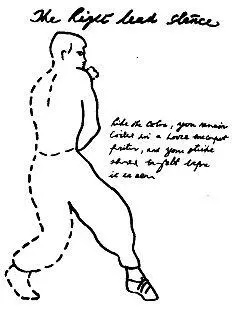 The Right lead stance
Like the Cobra, you remain
coiled in a loose compact
position, and your strike
should be felt before
it is seen